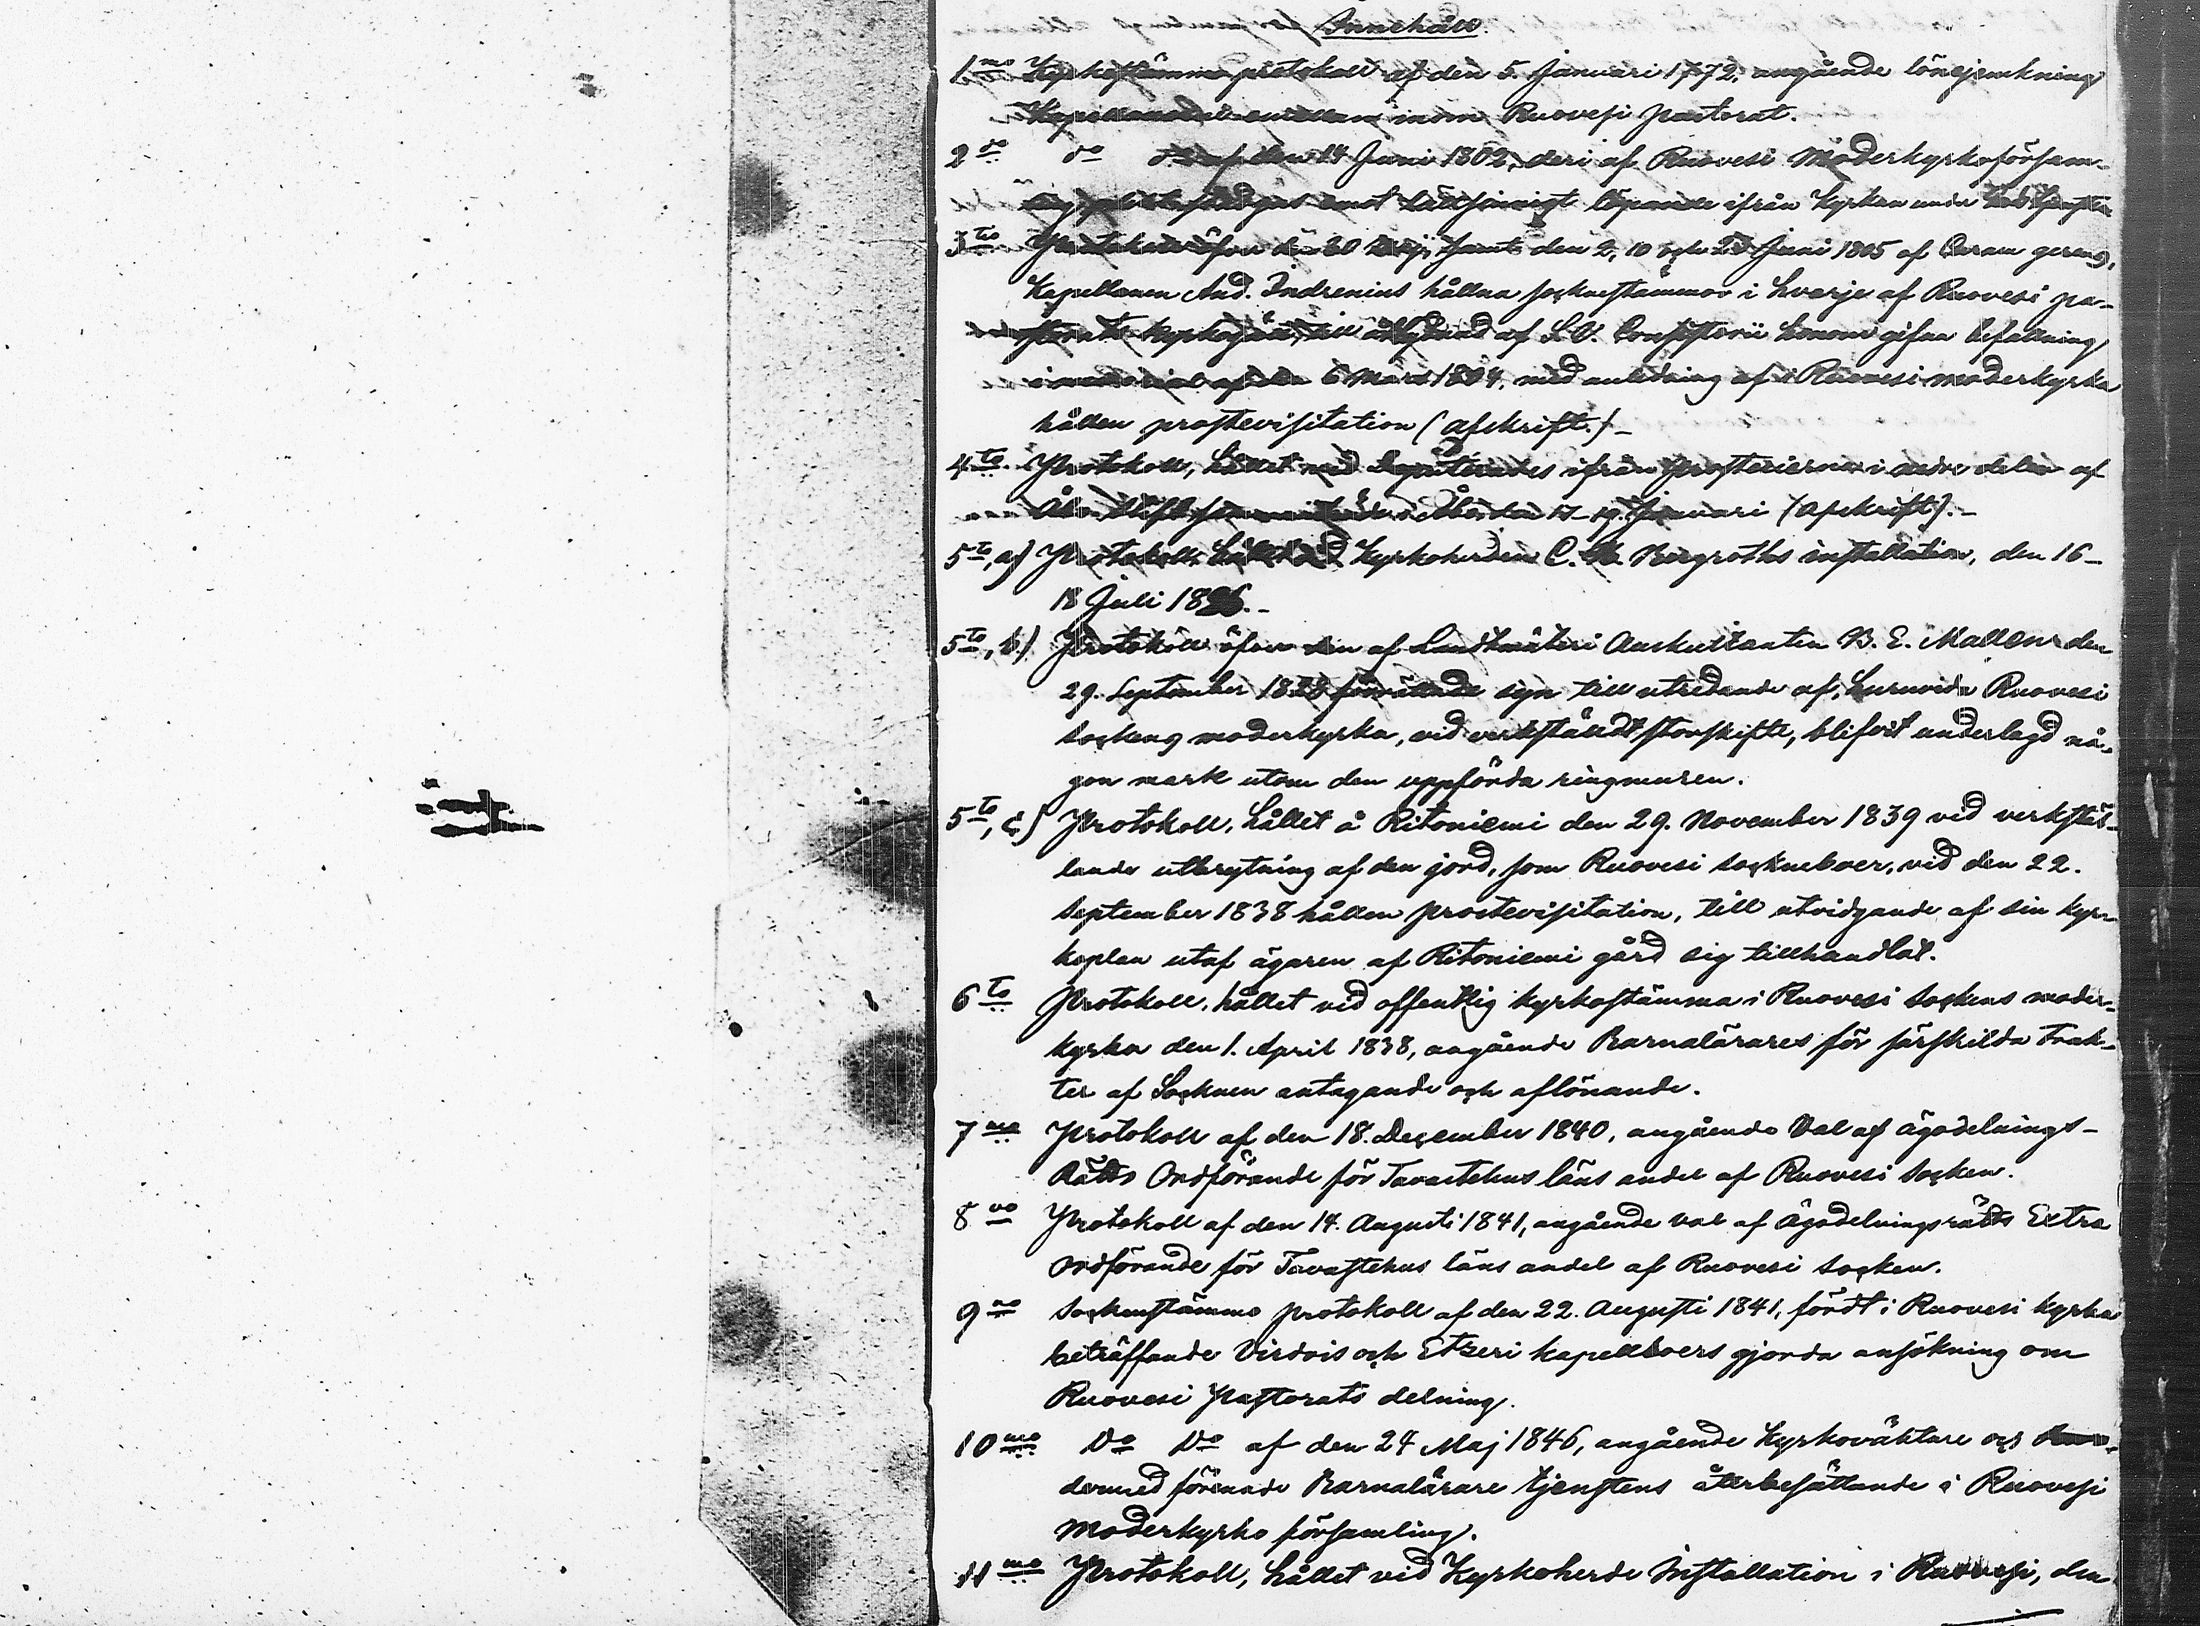 Innehåll.
1mo Kyrkostämmo protokoll af den 5. Januari 1772, angående lönejemkning
inom Ruovesi pastorat.
2do do do af den 14 Juni 1802, deri af Ruovesi Moderkyrkoförsam-
emot lättsinnigt löpande ifrån Kyrkan under
3tio Protokoll öfver den 20 Maj, samt den 2, 10 och 25 Juni 1805 af Curam gerens,
Kapellanen And. Indrenius hållna sockenstämmor i hvarje af Ruovesi pa-
storats kyrkor, till åtlydnad af L.V. Consistorii honom gifna befallning
af den 6 Mars 1804, med anledning af i Ruovesi moderkyrka
hållen prostevisitation (afskrift.)_
4to. Protokoll, hållet med Deputerades ifrån Prosterierna i andre delen af
Åbo Stift i Åbo den 17-19. Januari (afskrift)._
5to, a) Protokoll, hållet vid Kyrkoherden C. Bergroths installation, den 16_
18 Juli 18._
5to, b.) Protokoll öfver den af Landtmäteri Auskultanten B. E. Mallén den
29. September 1838 förrättade syn till utredande af, huruvida Ruovesi
sockens moderkyrka, vid verkstäldt storskifte, blifvit underlagd nå-
gon mark utom den uppförda ringmuren.
5to, c) Protokoll, hållet å Ritoniemi den 29. November 1839 vid verkstäl-
lande utbrytning af den jord, som Ruovesi socknboer, vid den 22.
September 1838 hållen prostevisitation, till utvidgande af sin kyr-
koplan utaf ägaren af Ritoniemi gård sig tillhandlat.
6to Protokoll, hållet vid offentlig kyrkostämma i Ruovesi sockens moder-
kyrka den 1. April 1838, angående Barnalärares för särskilda trak-
ter af Socknen antagande och aflönande.
7mo Protokoll af den 18. December 1840, angående Val af ägodelnings-
Rätts Ordförande för Tavastehus läns andel af Ruovesi Socken.
8vo Protokoll af den 14. Augusti 1841, angående val af Ägodelningsrätts Extra
Ordförande för Tavastehus läns andel af Ruovesi socken.
9no Sockenstämmo protokoll af den 22. Augusti 1841, fördt i Ruovesi kyrka
beträffande Virdois och Etzeri kapellboers gjorda ansökning om
Ruovesi Pastorats delning.
10mo Do Do af den 24 Maj 1846, angående Kyrkoväktare och
dermed förenade Barnalärare tjenstens återbesättande i Ruovesi
Moderkyrko församling.
11mo Protokoll, hållet vid Kyrkoherde Installation i Ruovesi, den